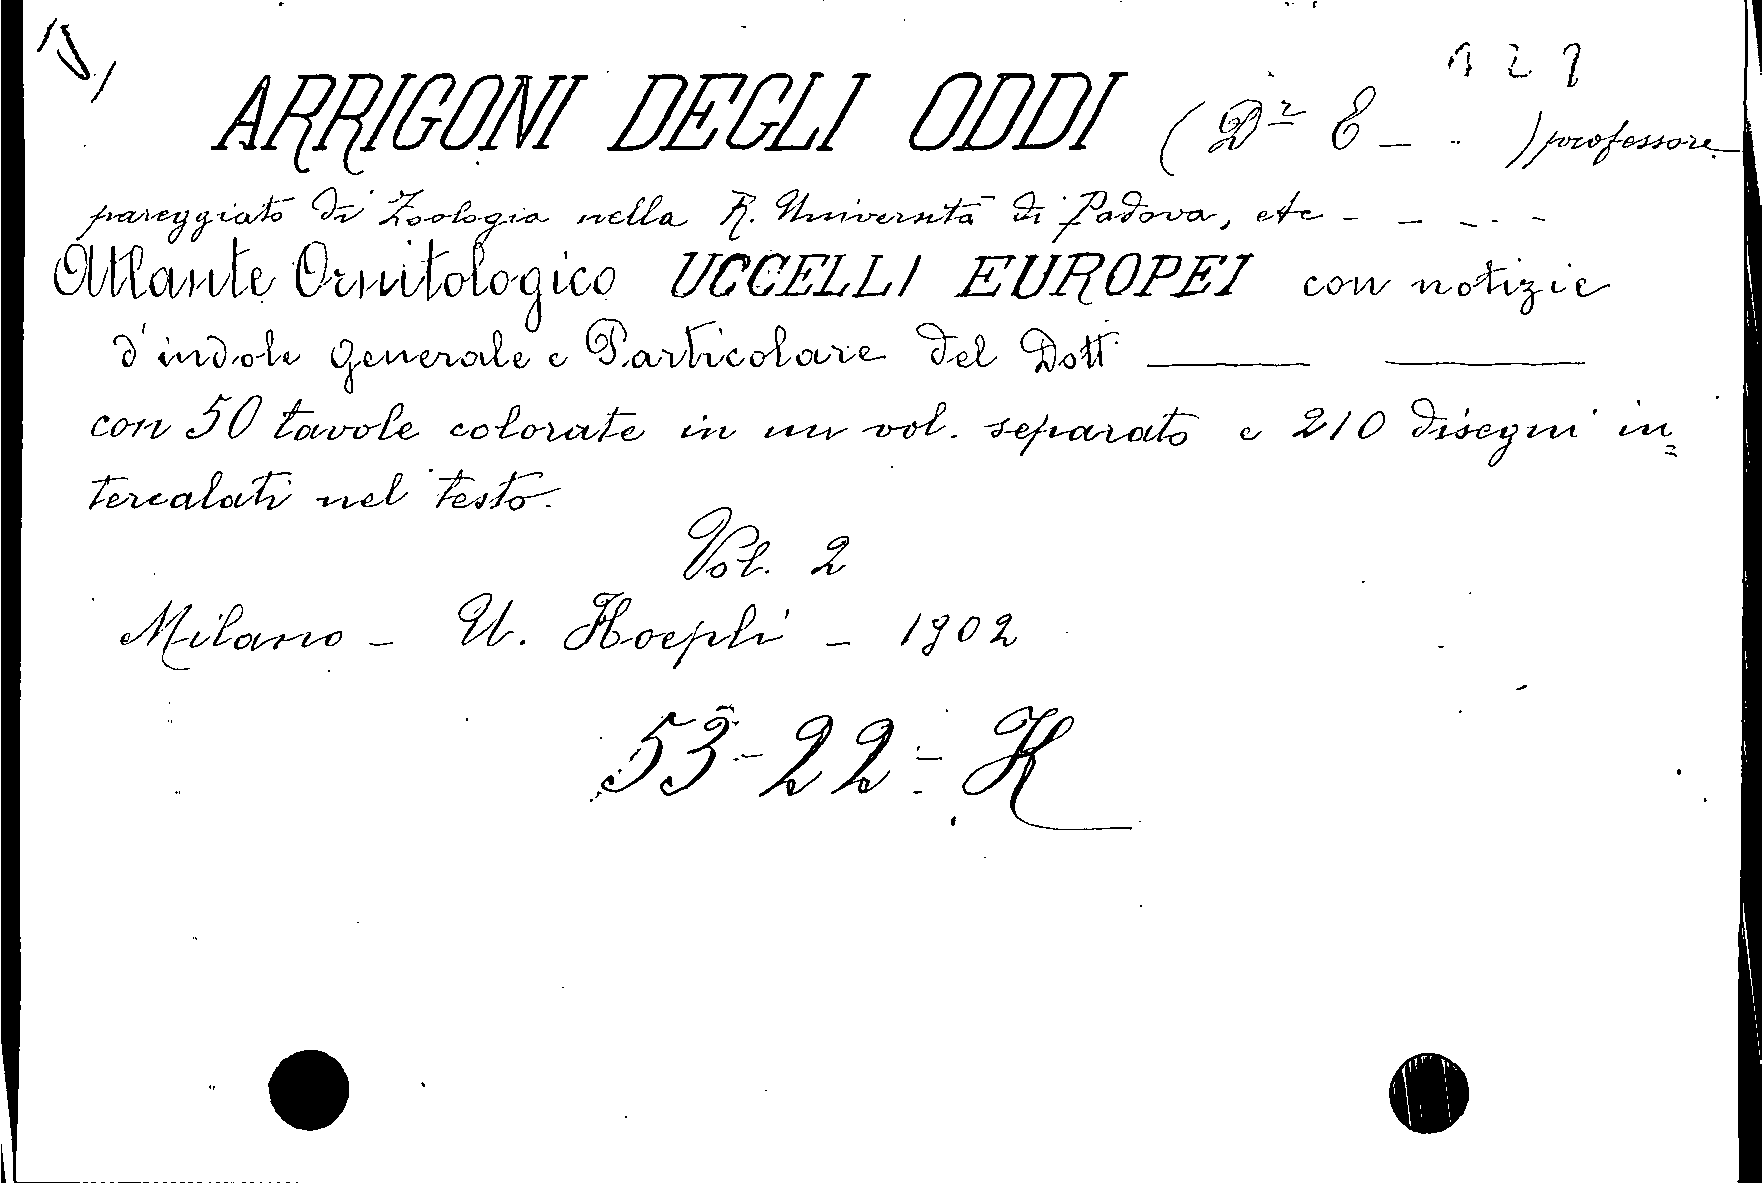 ARRIGONI DEGLI ODDI (Dr E - . ) professore
pareggiato di Zoologia nella R. Università di Padova, etc - - - . -
Atlante Ornitologico UCCELLI EUROPEI con notizie
d'indole generale e Particolare del Dott ——— ———
con 50 tavole colorate in un vol. separato e 210 disegni in=
tercalati nel testo.
Vol. 2
Milano - U. Hoepli - 1902
53-22-K